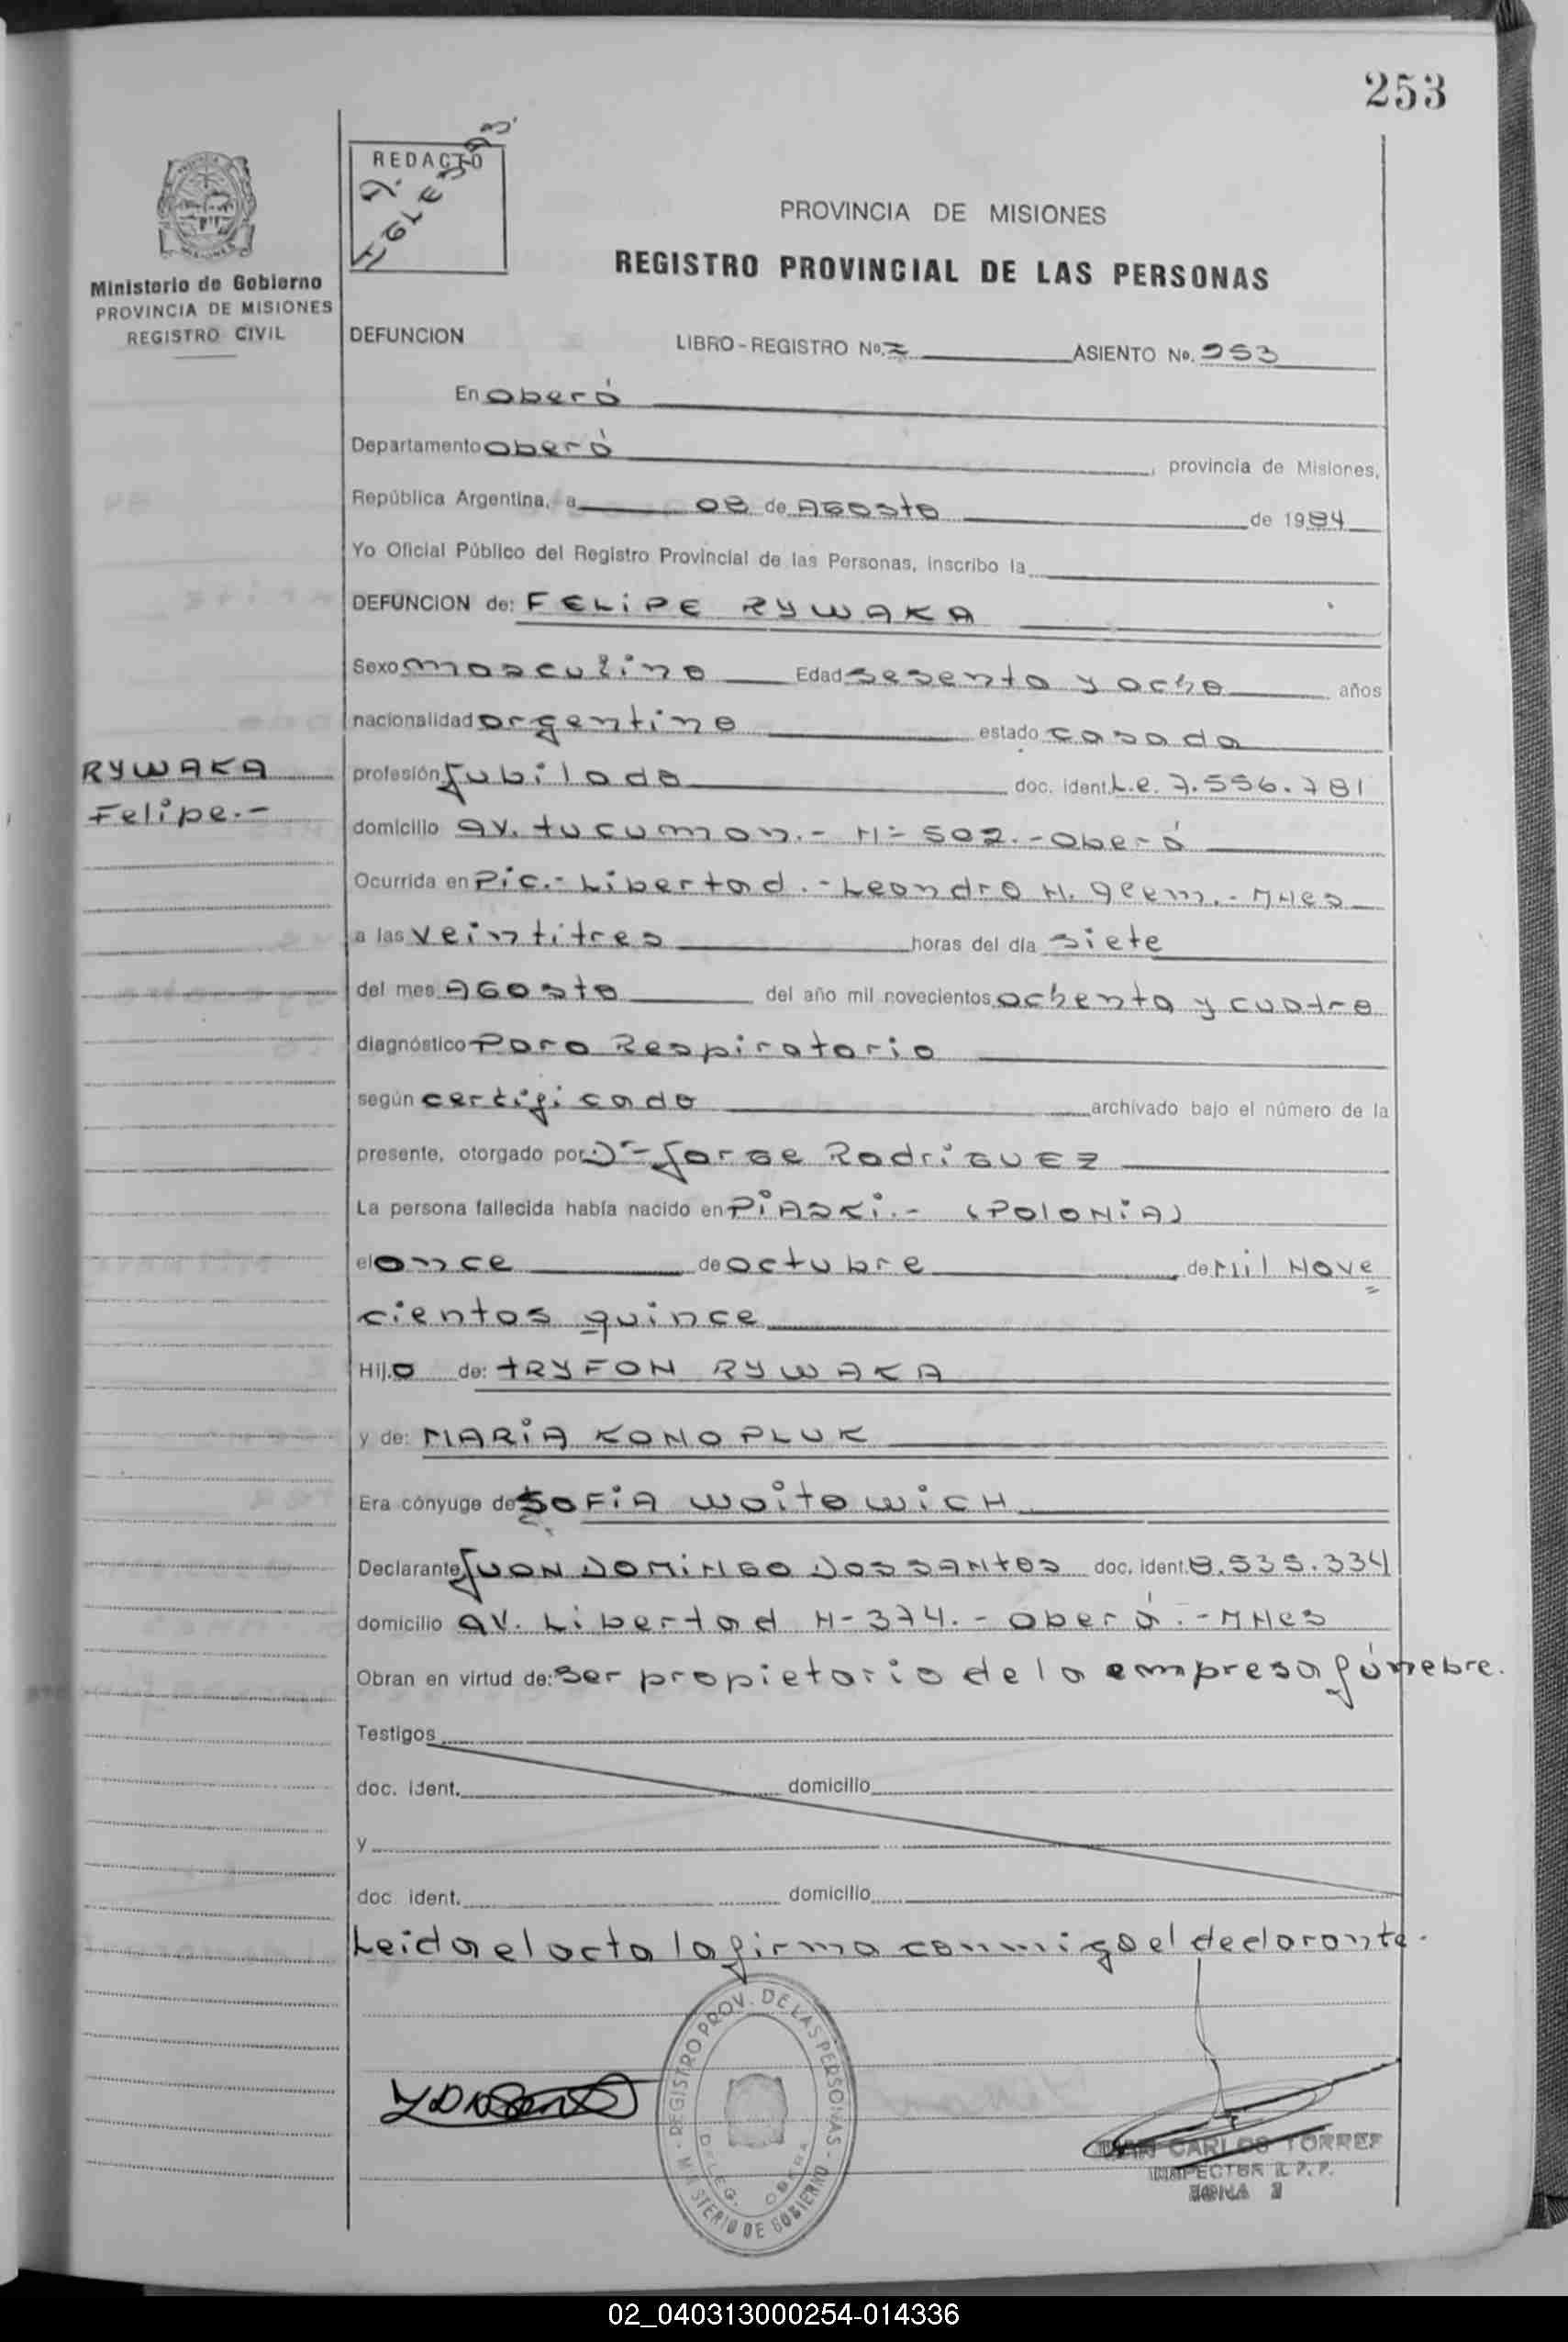 253
REDACTO
PROVINCIA DE MISIONES
REGISTRO PROVINCIAL DE LAS PERSONAS
Ministerio de Gobierno
PROVINCIA DE MISIONES
REGISTRO CIVIL
DEFUNCION LIBRO-REGISTRO Nº. ASIENTO Nº. 253
En Oberá
Departamento Oberá, provincia de Misiones,
República Argentina, a 08 de AGOSto de 1984
Yo Oficial Público del Registro Provincial de las Personas, inscribo la
DEFUNCION de: FELiPE RYWAKA
Sexo masculino Edad sesenta y ocho años
nacionalidad argentino estado casado
RYWAKA
Felipe.-
profesión Jubilado doc. ident. L.e. 7.556.781
domicilio av. tucuman.- Nº 502.- Oberá
Ocurrida en Pic.- Libertad.- Leandro N. Alem.- MNes
a las veintitres horas del día siete
del mes AGOSto del año mil novecientos ochenta y cuatro
diagnóstico Paro Respiratorio
según certificado archivado bajo el número de la
presente, otorgado por: Dr- Jorge RodriGUEZ
La persona fallecida había nacido en PiASKi.- (POLONiA)
el once de octubre de Mil Nove
cientos quince
Hij.o de: tRYFON RYWAKA
y de: MARiA KONOPLUK
Era cónyuge de SOFiA WOitOWiCH
Declarante JUAN DOMiNGO DOSSANtOS doc. ident. 8.535.334
domicilio av. Libertad N-374.- Oberá.- MNes
Obran en virtud de: ser propietario de la empresa fúnebre.
Testigos
doc. ident. domicilio
y
doc. ident. domicilio
Leida el acta la firma conmigo el declarante.
REGISTRO PROV. DE LAS PERSONAS - MINISTERIO DE GOBIERNO
DELEG. OBERA
JUAN CARLOS TORRES
INSPECTOR R. P. P.
ZONA
02_040313000254-014336